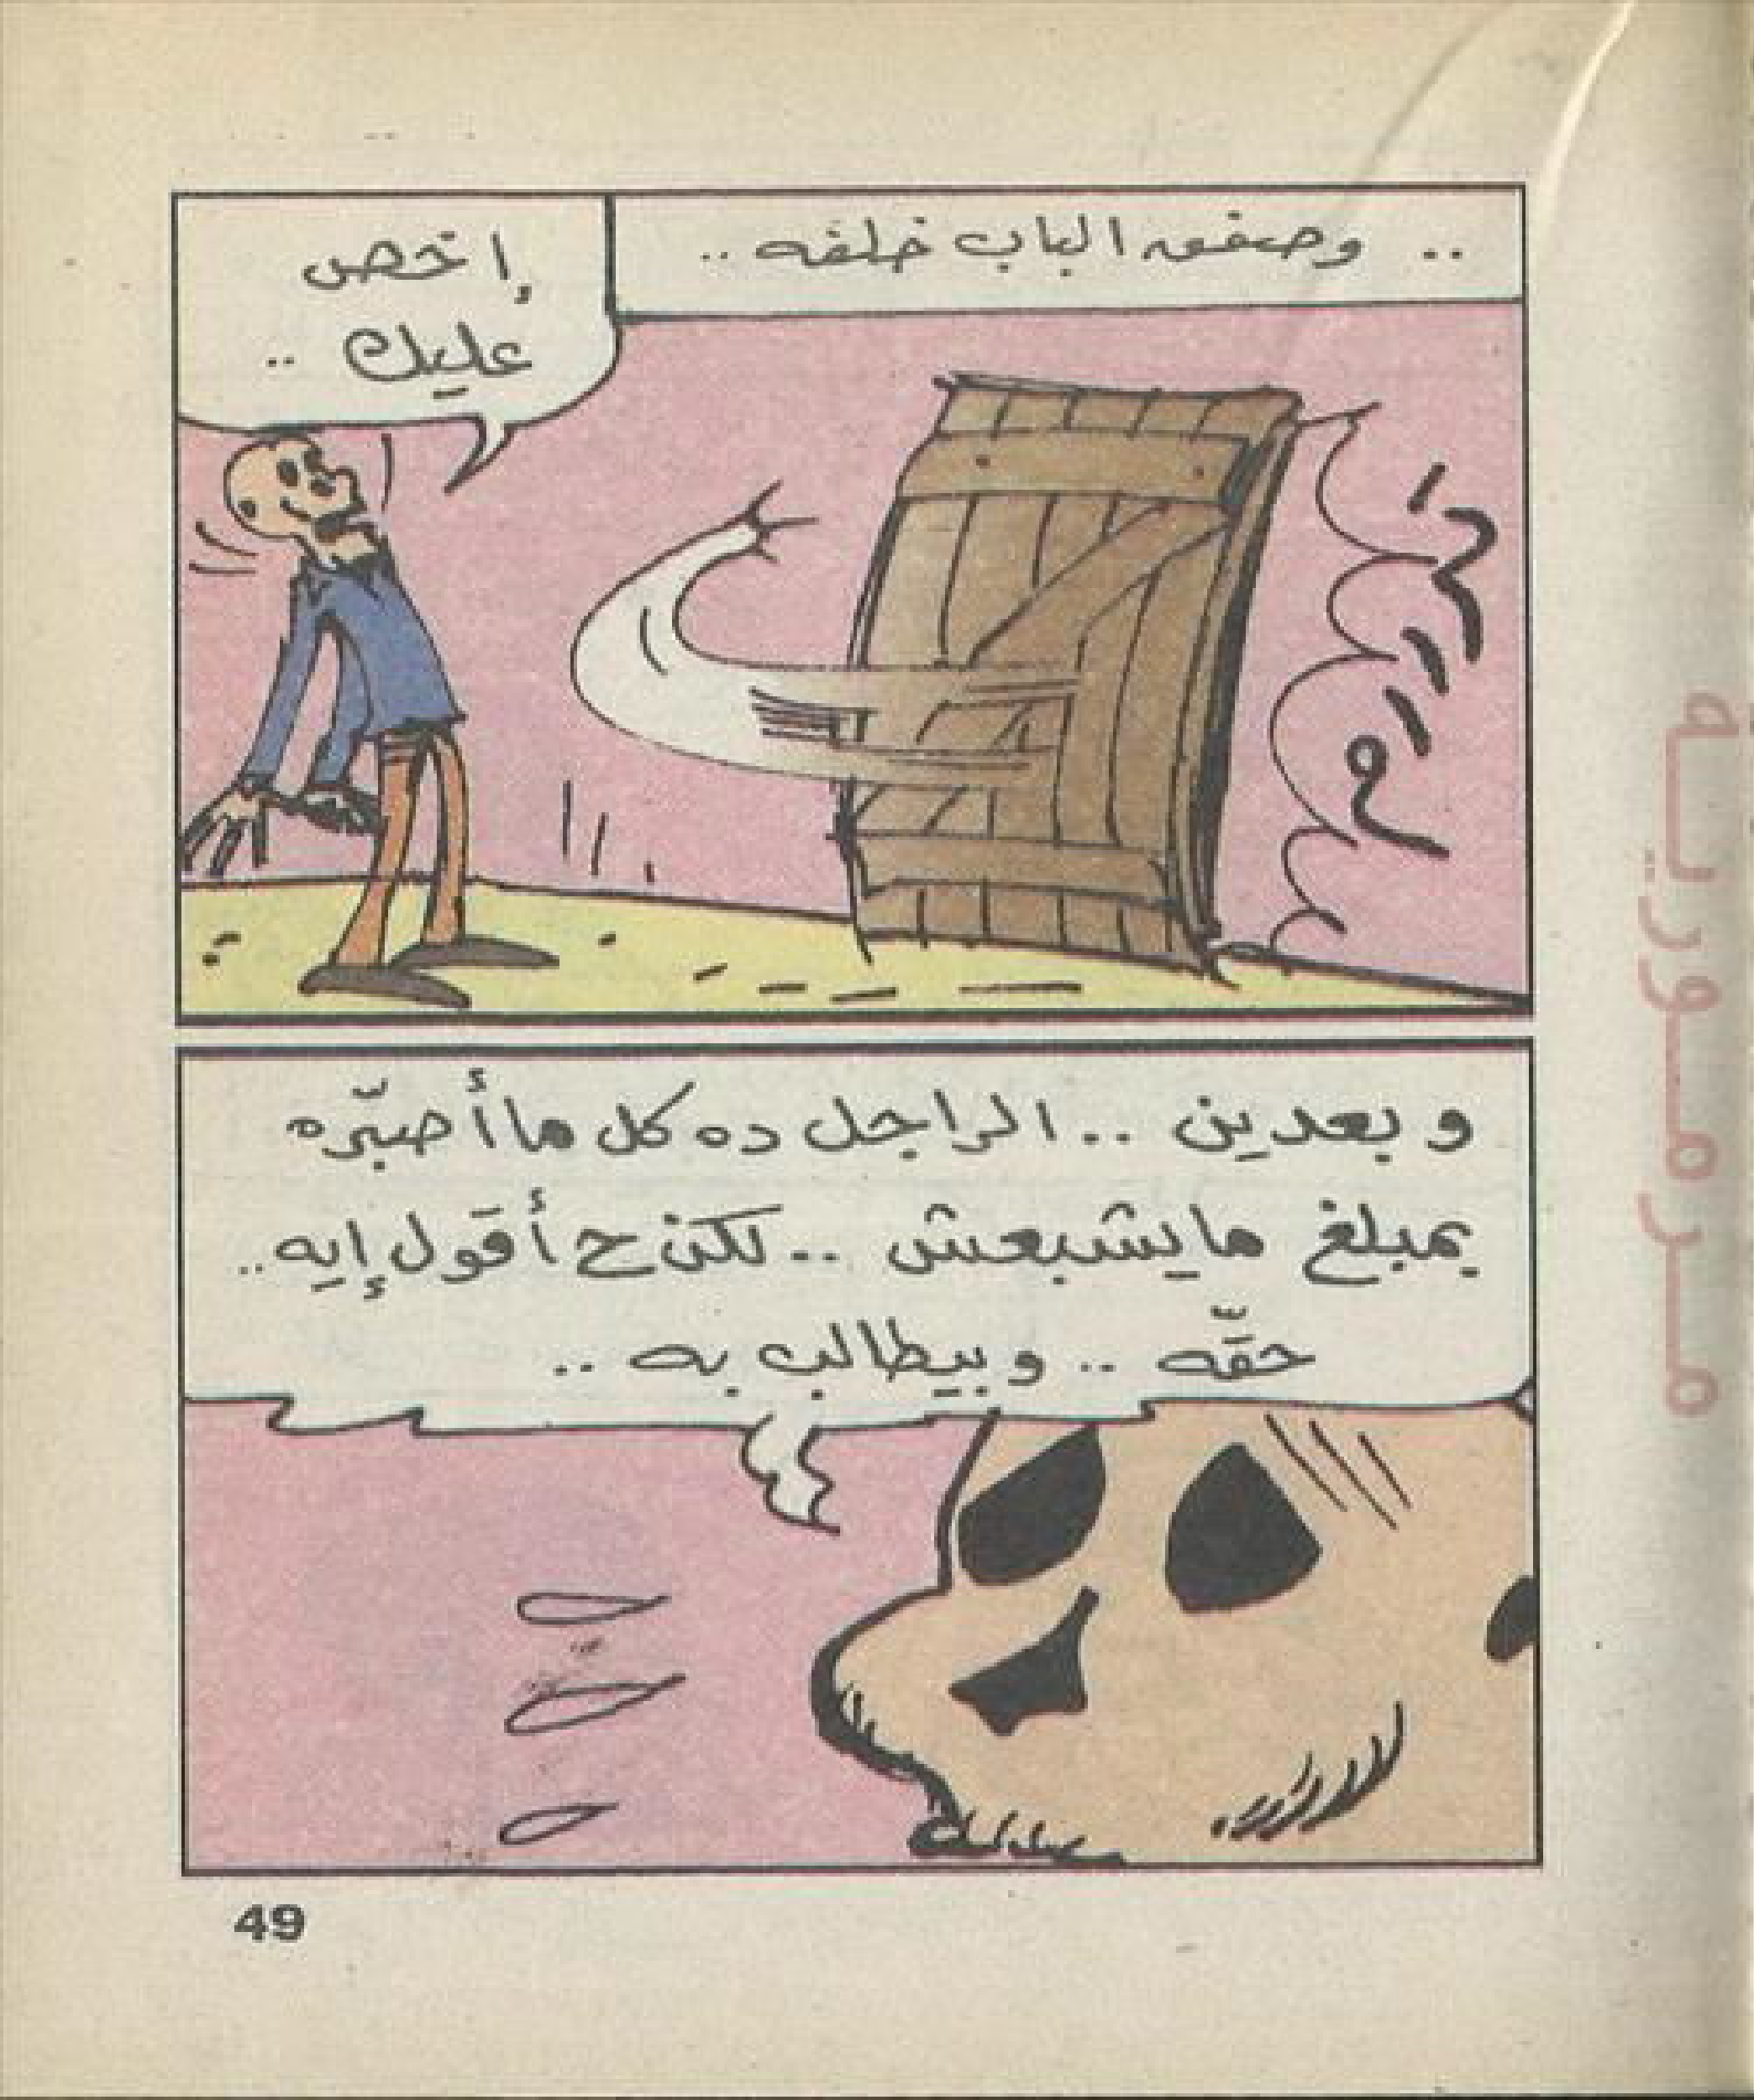 .. وصفق الباب خلفه ..
إخص
عليك ..
طراااخ
وبعدين .. الراجل ده كل ما أصبّره
بمبلغ ما يشبعش .. لكن ح أقول إيه ..
حقّه .. وبيطالب به ..
49